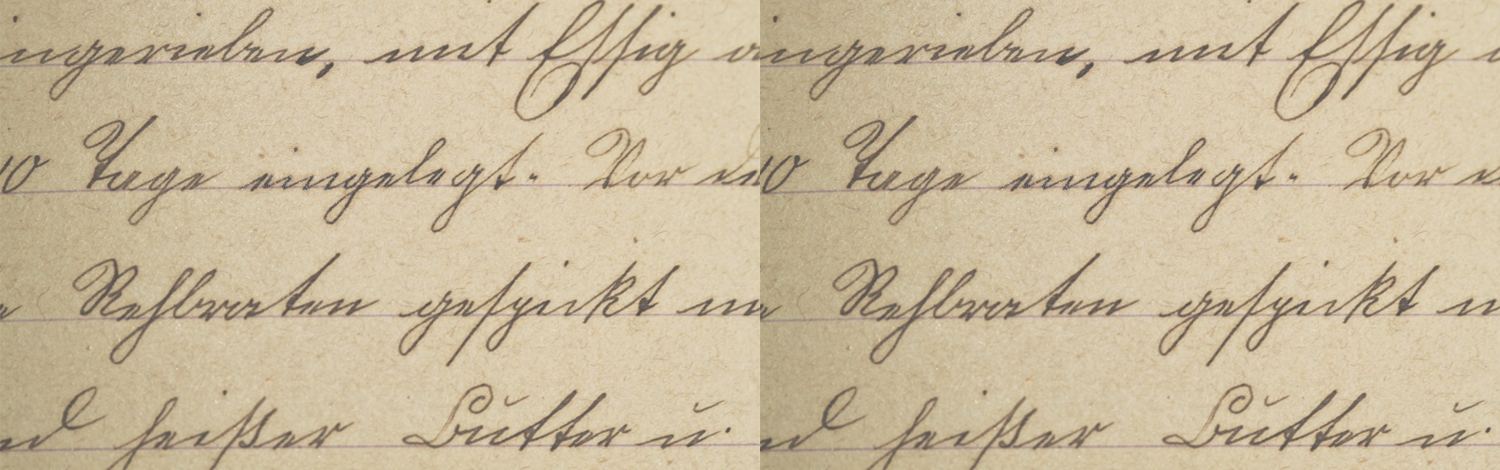 ingerieben, mit Essig
10 Tage eingelegt. Vor
Rehbraten gespickt
heißer Butter u.
ingerieben, mit Essig
10 Tage eingelegt. Vor
Rehbraten gespickt
heißer Butter u.